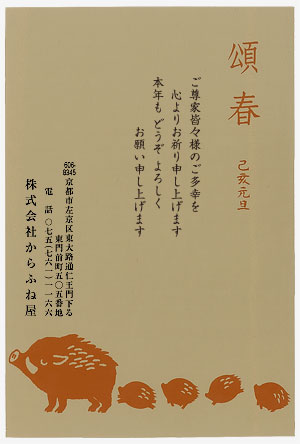 頌春
己亥元旦
ご尊家皆々様のご多幸を
心よりお祈り申し上げます
本年もどうぞよろしく
お願い申し上げます
606-8345
京都市左京区東大路通仁王門下る
東門前町五〇五番地
電話〇七五(七六一)一一六六
株式会社からふね屋